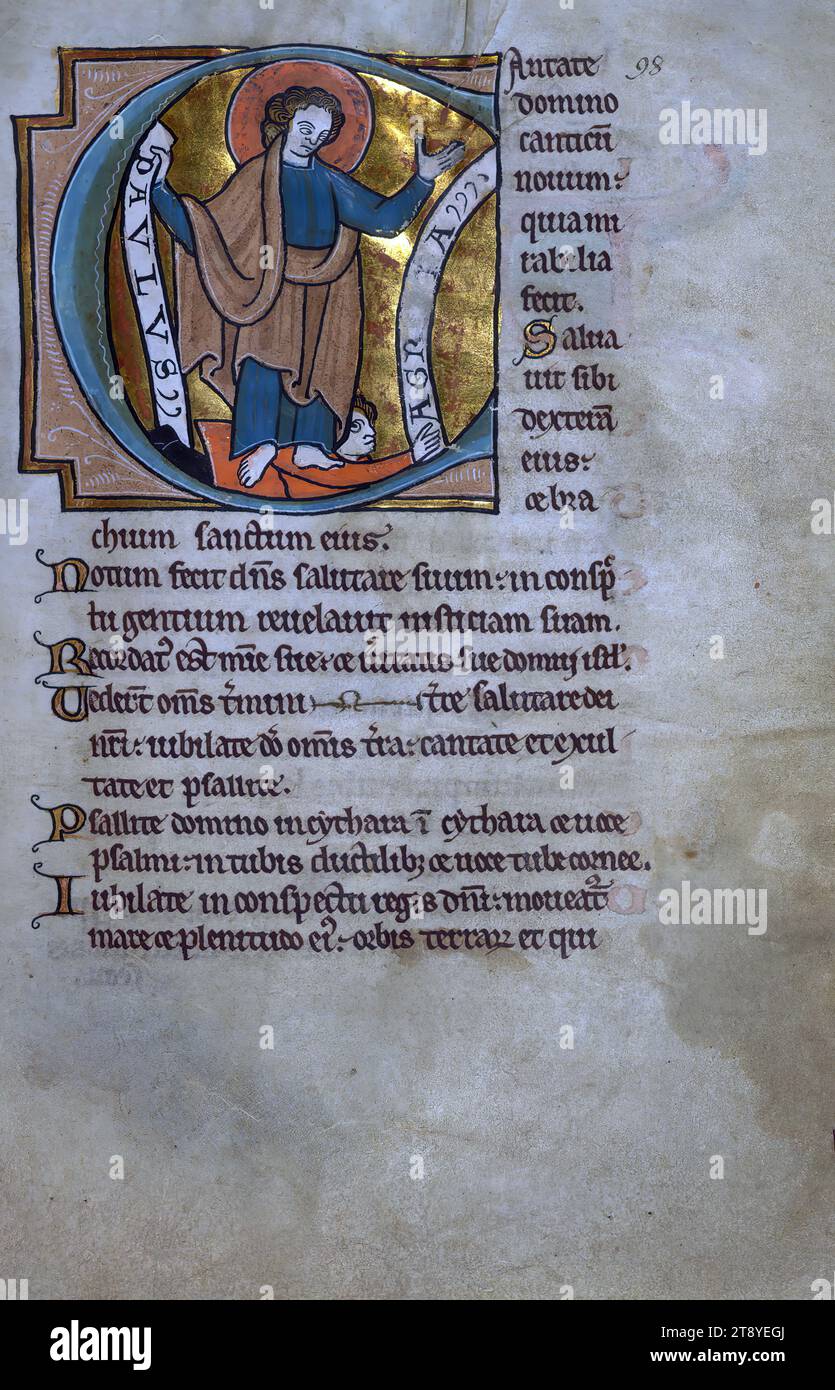 PAVLVS
AGRIPA
Antate 98
domino
canticū
nouum:
quia mi
rabilia
fecit.
Salua
uit sibi
dexterā
eius:
et bra
chium sanctum eius.
Notum fecit dn̄s salutare suum: in consp̄
tu gentium reuelauit iusticiam suam.
Recordatꝰ est mīe sue: et ueritatis sue domui isrl̄.
Viderūt om̄s t̄mini t̄re salutare dei
nr̄i: iubilate dō omīs t̄ra: cantate et exul
tate et psallite.
Psallite domino in cythara ī cythara et uoce
psalmi: in tubis ductilibꝫ et uoce tube cornee.
Iubilate in conspectu regis dn̄i: moueat᷑
mare et plenitudo eiꝰ: orbis terraꝝ et qui
alamy
alamy
Image ID: 2T8YEGJ
www.alamy.com